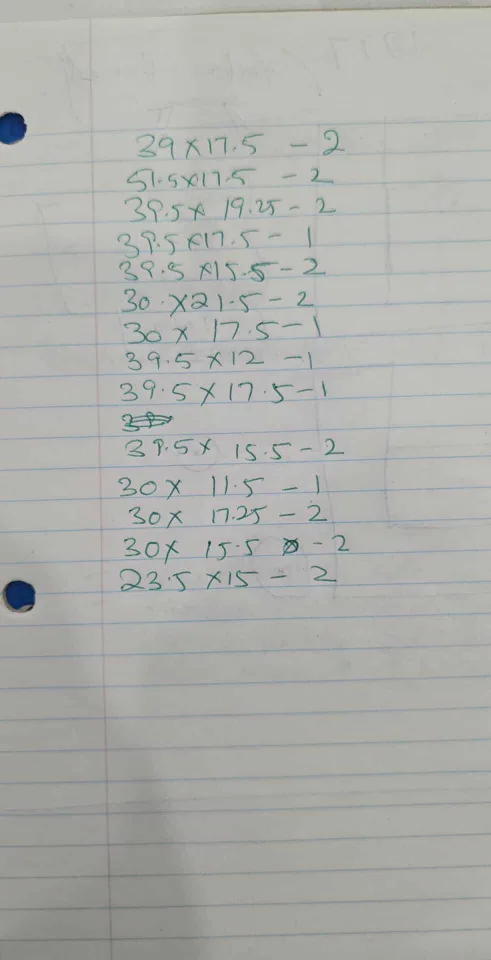 39 x 17.5 - 2
51.5 x 17.5 - 2
39.5 x 19.25 - 2
39.5 x 17.5 - 1
39.5 x 15.5 - 2
30. x 21.5 - 2
30 x 17.5 - 1
39.5 x 12 - 1
39.5 x 17.5 - 1
39.5 x 15.5 - 2
30 x 11.5 - 1
30 x 17.25 - 2
30 x 15.5 - 2
23.5 x 15 - 2